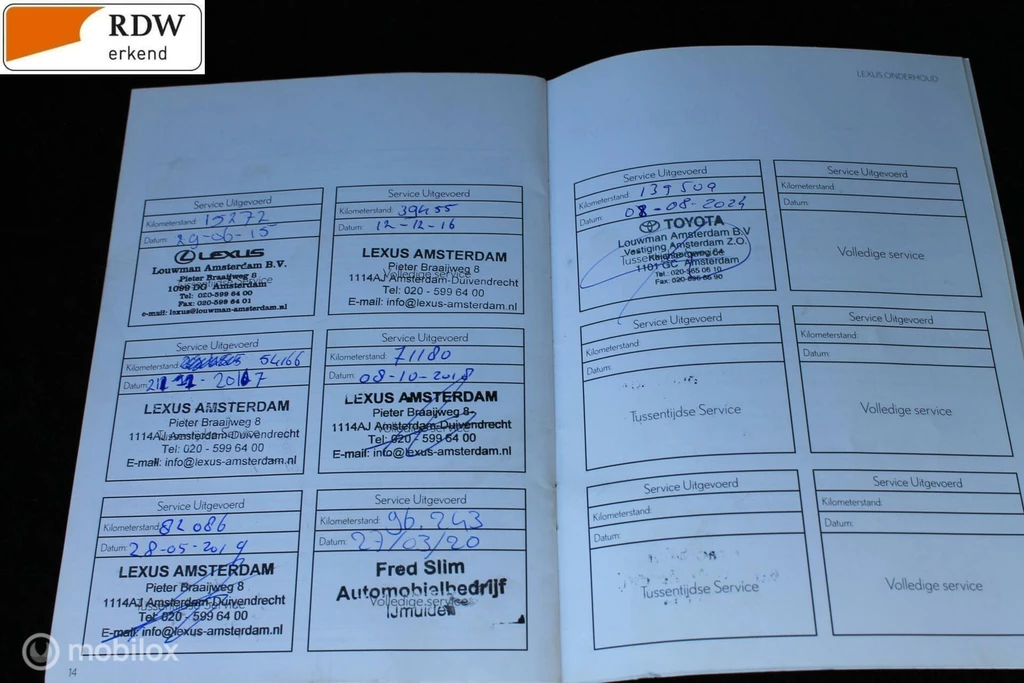 RDW
erkend
LEXUS ONDERHOUD
Service Uitgevoerd
Kilometerstand: 15272
Datum: 29-06-15
LEXUS
Louwman Amsterdam B.V.
Pieter Braaijweg 8
1099 DG Amsterdam
Tel: 020-599 64 00
Fax: 020-599 64 01
e-mail: lexus@louwman-amsterdam.nl
Service Uitgevoerd
Kilometerstand: 39455
Datum: 12-12-16
LEXUS AMSTERDAM
Pieter Braaijweg 8
Volledige service
1114AJ Amsterdam-Duivendrecht
Tel: 020 - 599 64 00
E-mail: info@lexus-amsterdam.nl
Service Uitgevoerd
Kilometerstand: 54166
Datum: 2017
LEXUS AMSTERDAM
Pieter Braaijweg 8
1114AJ Amsterdam-Duivendrecht
Tel: 020 - 599 64 00
E-mail: info@lexus-amsterdam.nl
Service Uitgevoerd
Kilometerstand: 71180
Datum: 08-10-2018
LEXUS AMSTERDAM
Pieter Braaijweg 8
1114AJ Amsterdam-Duivendrecht
Tel: 020 - 599 64 00
E-mail: info@lexus-amsterdam.nl
Service Uitgevoerd
Kilometerstand: 82086
Datum: 28-05-2019
LEXUS AMSTERDAM
Pieter Braaijweg 8
1114AJ Amsterdam-Duivendrecht
Tel: 020 - 599 64 00
E-mail: info@lexus-amsterdam.nl
Service Uitgevoerd
Kilometerstand: 96.243
Datum: 27/03/20
Fred Slim
Automobielbedrijf
Volledige service
IJmuiden
14
Service Uitgevoerd
Kilometerstand: 139509
Datum: 08-08-2024
TOYOTA
Louwman Amsterdam B.V
Vestiging Amsterdam Z.O.
1101 GC Amsterdam
Service Uitgevoerd
Kilometerstand:
Datum:
Volledige service
Service Uitgevoerd
Kilometerstand:
Datum:
Tussentijdse Service
Service Uitgevoerd
Kilometerstand:
Datum:
Volledige service
Service Uitgevoerd
Kilometerstand:
Datum:
Tussentijdse Service
Service Uitgevoerd
Kilometerstand:
Datum:
Volledige service
mobilox